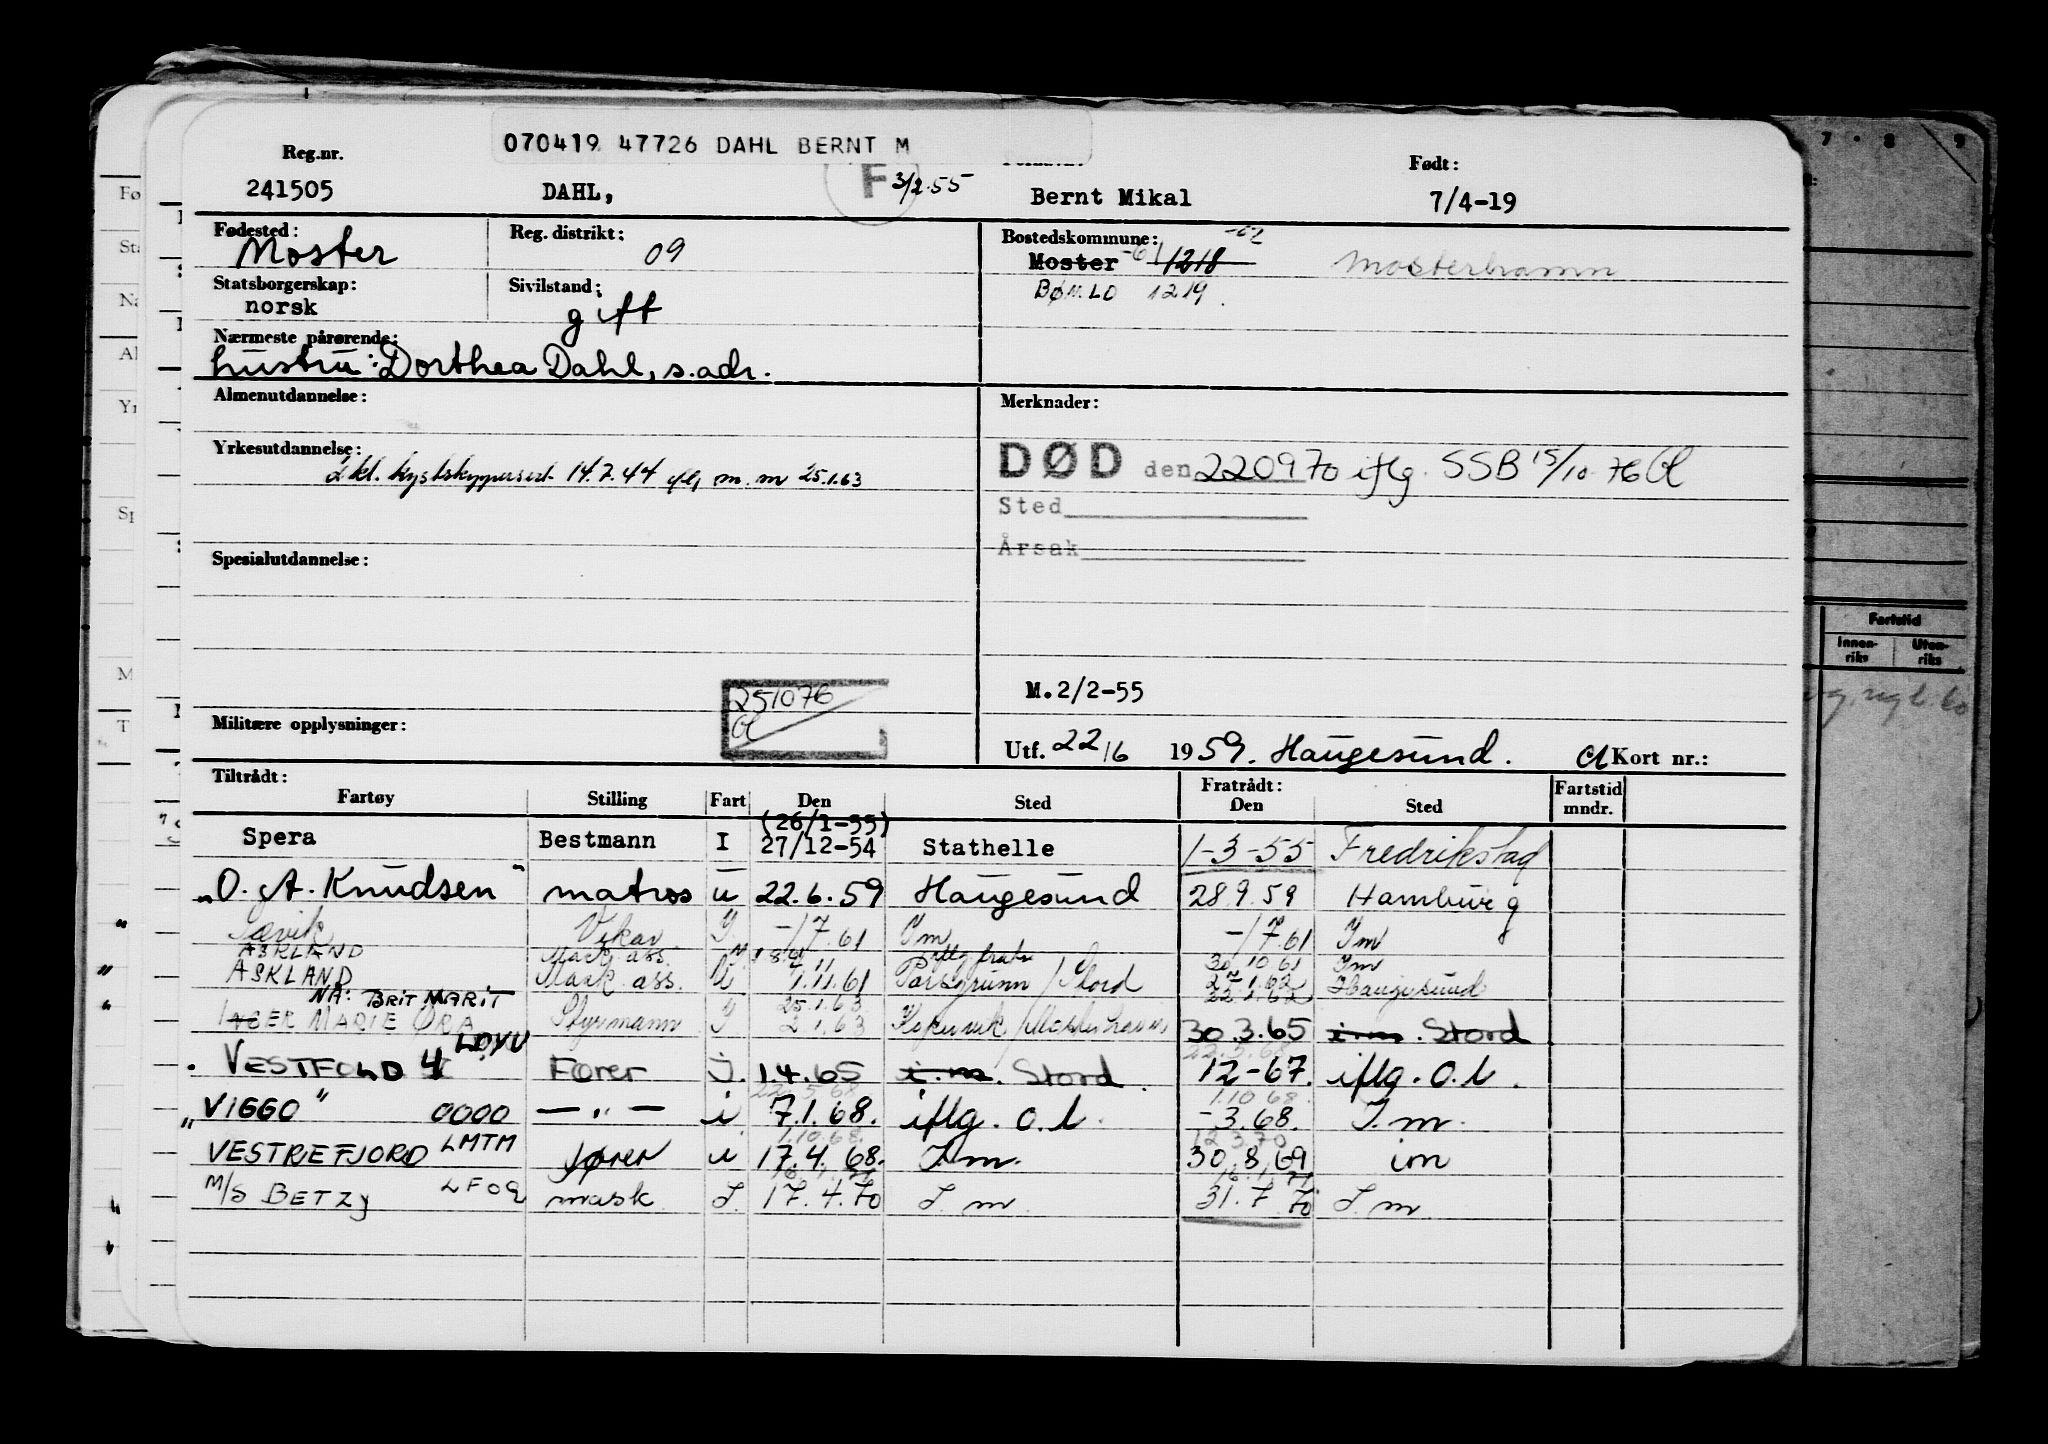 070419 47726 DAHL BERNT M
Reg.nr. Født:
241505 DAHL, F 3/2.55 Bernt Mikal 7/4-19
Fødested: Reg. distrikt: Bostedskommune: -62
Moster 09 Moster -61 1218 Mosterhamn
Statsborgerskap: Sivilstand: BØMLO 1219
norsk gift
Nærmeste pårørende:
hustru: Dorthea Dahl, s.adr.
Almenutdannelse: Merknader:
Yrkesutdannelse: DØD den 220970 iflg. SSB 15/10 76
2 kl. kystskippersert. 14.7.44 iflg m.m 25.1.63
Sted
Årsak
Spesialutdannelse:
251076
M.2/2-55
Militære opplysninger:
Utf. 22/6 1959. Haugesund. Kort nr.:
Tiltrådt: Fratrådt:
Fartøy Stilling Fart Den Sted Den Sted Fartstid mndr.
(26/1-55)
Spera Bestmann I 27/12-54 Stathelle 1-3-55 Fredrikstad
"O. A. Knudsen" matros u 22.6.59 Haugesund 28.9.59 Hamburg
Sævik Vikar I -/7.61 Im -/7.61 Im
ASKLAND Mask. ass. 30.10.61 Im
ASKLAND Mask ass. U 1.11.61 Porsgrunn / Stord Haugesund
NÅ: BRIT MARIT 25.1.63
INGER MARIE ØRA Styrmann I 2.1.63 30.3.65 i.m. Stord
LDYU 22.5.68
VESTFOLD 4 Fører i. 1.4.65 i.m. Stord. 12-67. iflg. o.l.
22.5.68 1.10.68.
"VIGGO" 0000 — " — i 7.1.68. iflg. o.l. -3.68. I.m.
1.10.68. 12.3.70
VESTREFJORD LMTM fører i 17.4.68. I.m. 30.8.69 im
M/S BETZY LFOQ mask I. 17.4.70 I.m. 31.7.70 I.m.
Fartstid
Innen-riks Uten-riks